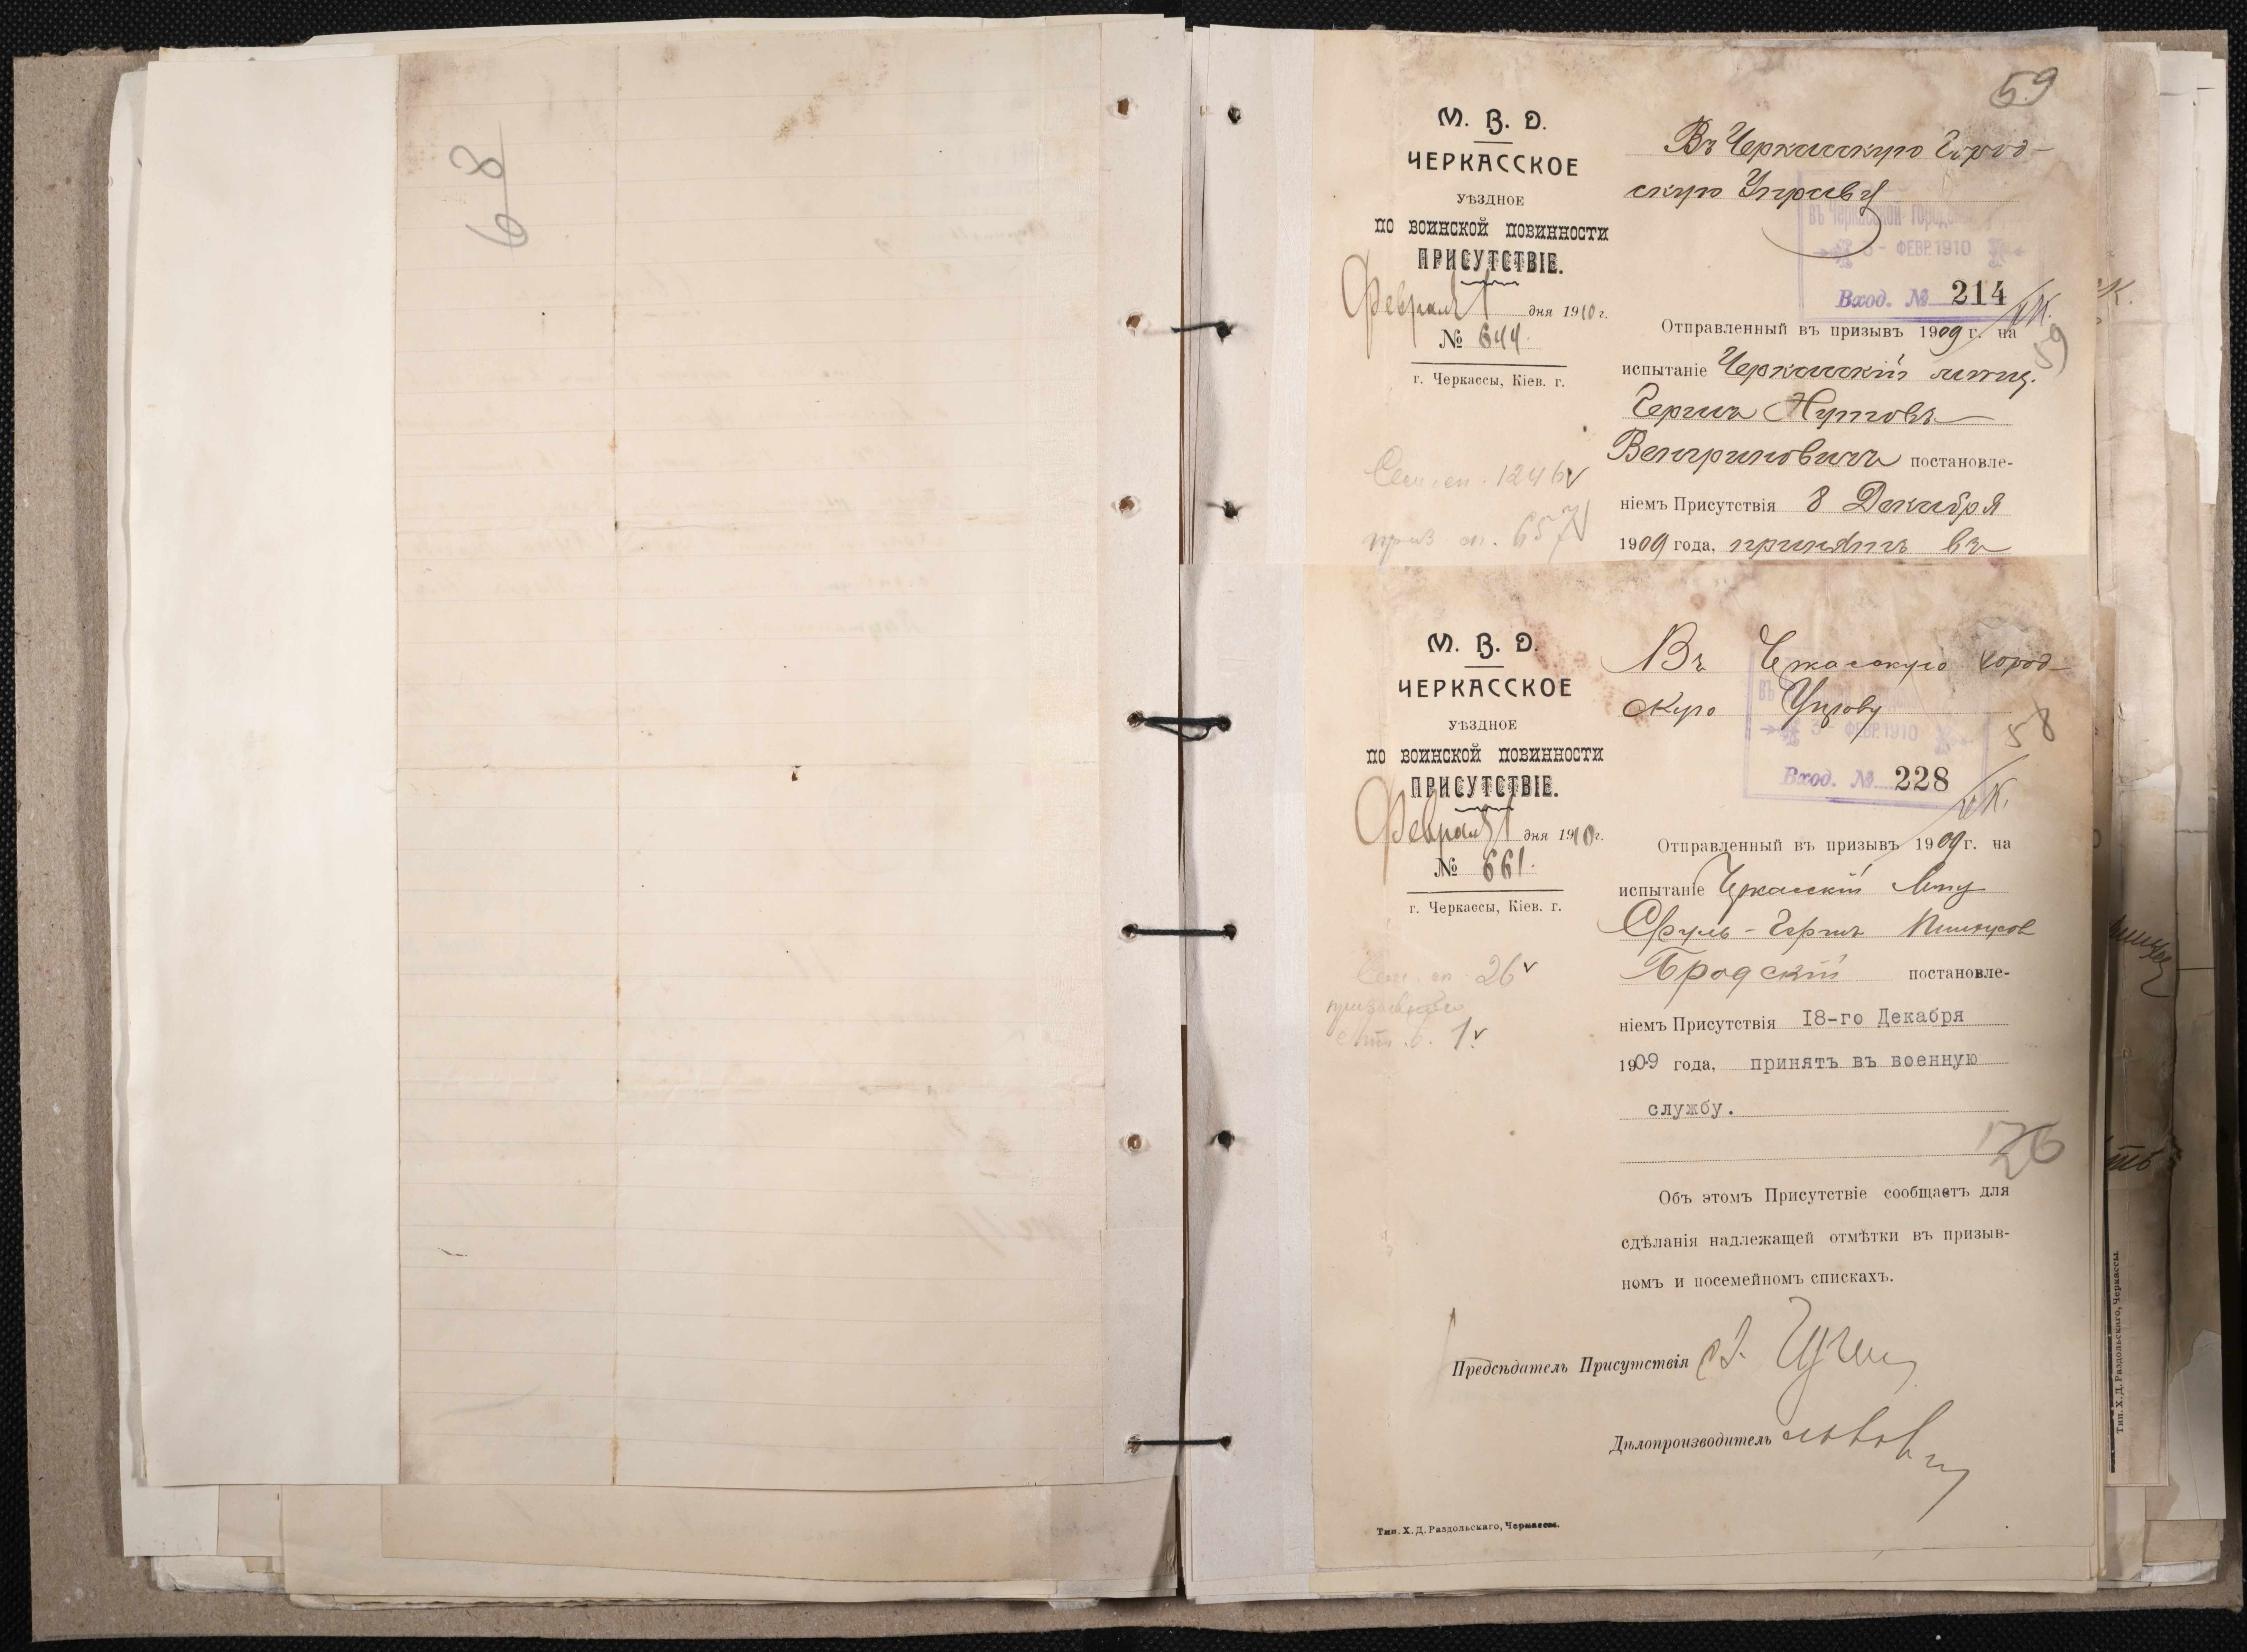 68
59
М. В. Д.
ЧЕРКАССКОЕ
УѢЗДНОЕ
ПО ВОИНСКОЙ ПОВИННОСТИ
ПРИСУТСТВІЕ.
Февраля 1 дня 1910 г.
№ 644.
г. Черкассы, Кіев. г.
Сем. сп. 1246 v
приз. сп. 657 v
Въ Черкасскую Город-
скую Управу
въ Черкасской Город
3 - ФЕВР. 1910
Вход. № 214
Отправленный въ призывъ 1909 г. на
59
испытаніе Черкасскій мѣщ.
Гершъ Нутовъ
постановле-
ніемъ Присутствія 8 Декабря
1909 года, принятъ въ
М. В. Д.
ЧЕРКАССКОЕ
УѢЗДНОЕ
ПО ВОИНСКОЙ ПОВИННОСТИ
ПРИСУТСТВІЕ.
Февраля 1 дня 1910 г.
№ 661.
г. Черкассы, Кіев. г.
Сем. сп. 26 v
призывного
1 v
Въ Черкасскую Город-
скую Управу
58
3 - ФЕВР. 1910
Вход. № 228
Отправленный въ призывъ 1909 г. на
испытаніе Черкасскій мѣщ
Сруль-Гершъ Пинхусов
Бродскій постановле-
ніемъ Присутствія 18-го Декабря
1909 года, принятъ въ военную
службу.
Объ этомъ Присутствіе сообщаетъ для
сдѣланія надлежащей отмѣтки въ призыв-
номъ и посемейномъ спискахъ.
Предсѣдатель Присутствія
Дѣлопроизводитель
Тип. Х. Д. Раздольскаго, Черкассы.
Тип. Х. Д. Раздольскаго, Черкассы